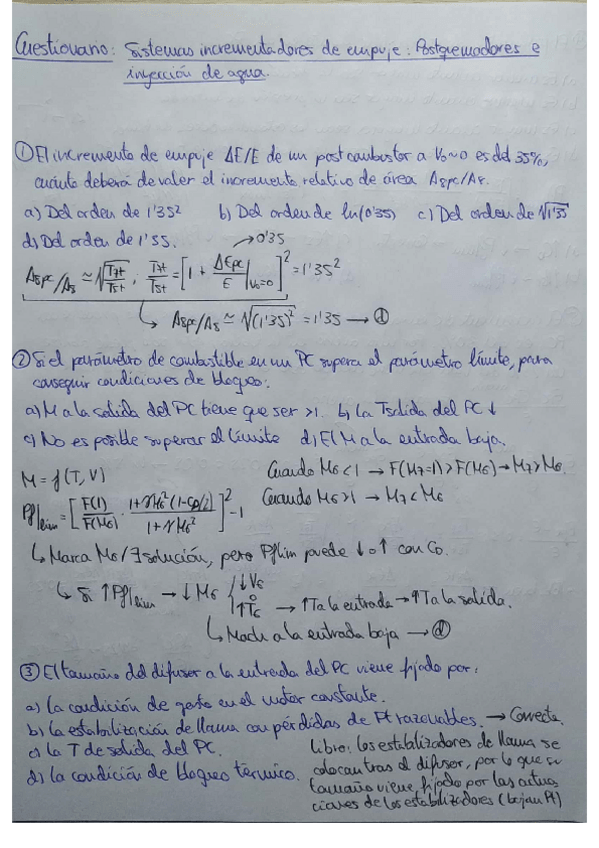 Cuestionario: Sistemas incrementadores de empuje: Postquemadores e
inyección de agua.
① El incremento de empuje ΔE/E de un postcombustor a V₀~0 es del 35%,
cuánto deberá de valer el incremento relativo de área A8pc/A8.
a) Del orden de 1'35² b) Del orden de ln(0'35) c) Del orden de √1'35
d) Del orden de 1'35.
→0'35
A8pc/A8 ≃ √(T7t/T5t), T7t/T5t = [1 + ΔEpc/E |V₀=0]² = 1'35²
↳ A8pc/A8 ≃ √(1'35)² = 1'35 → ⓓ
② Si el parámetro de combustible en un PC supera el parámetro límite, para
conseguir condiciones de bloqueo:
a) M a la salida del PC tiene que ser >1. b) La Tsalida del PC ↓
c) No es posible superar el límite d) El M a la entrada baja.
M = f(T, V) Cuando M6 < 1 → F(M7=1) > F(M6) → M7 > M6.
Pf|lim = [F(1)/F(M6) · (1+γM6²(1-CD/2))/(1+γM6²)]² - 1 Cuando M6 > 1 → M7 < M6
↳ Marca M6/∃ solución, pero Pflim puede ↓ o ↑ con CD.
↳ Si ↑Pf|lim → ↓M6 { ↓V6 o ↑T6 → ↑T a la entrada → ↑T a la salida.
↳ Mach a la entrada baja → ⓓ
③ El tamaño del difusor a la entrada del PC viene fijado por:
a) La condición de gasto en el motor constante.
b) La estabilización de llama con pérdidas de Pt razonables. → Correcta.
c) La T de salida del PC.
d) La condición de bloqueo térmico.
Libro: los estabilizadores de llama se
colocan tras el difusor, por lo que su
tamaño viene fijado por las actua
ciones de los estabilizadores (bajan Pt)